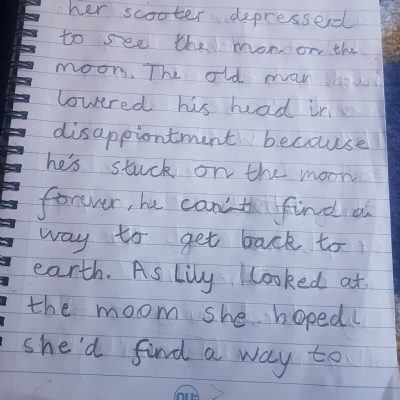 her scooter depressed
to see the man on the
moon. The old man
lowered his head in
disappiontment because
he's stuck on the moon
forever, he can't find a
way to get back to
earth. As Lily looked at
the moom she hoped
she'd find a way to